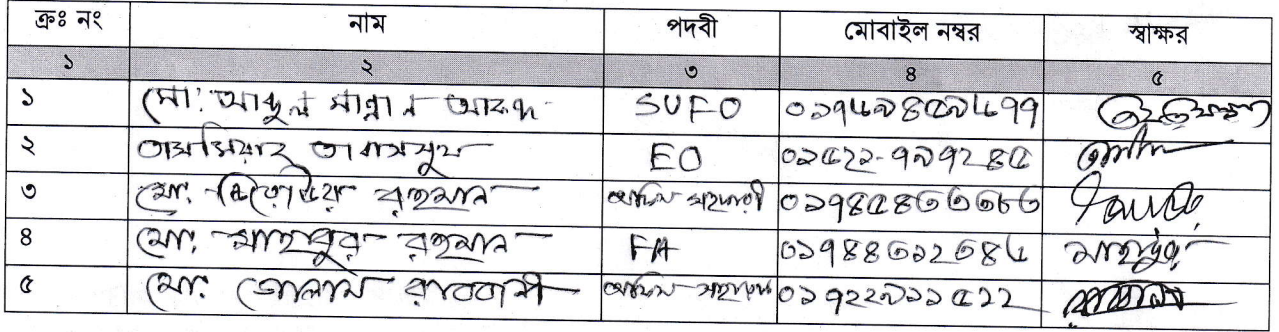 ক্রঃ নং নাম পদবী মোবাইল নম্বর স্বাক্ষর
১ ২ ৩ ৪ ৫
১ মো: আব্দুল মান্নান আকন্দ SUFO ০১৭৬৯৪৫৯৬৭৭
২ তাবাসসুম EO ০১৫২২-৭৯৭২৪৫
৩ মো. রহমান অফিস সহকারী ০১৭৪৫৪৩৩৩৮৩
৪ মো. মাহাবুর রহমান FA ০১৭৪৪৩১২৩৪৬
৫ মো. গোলাম রাব্বানী অফিস ০১৭২২৯১১৫২২